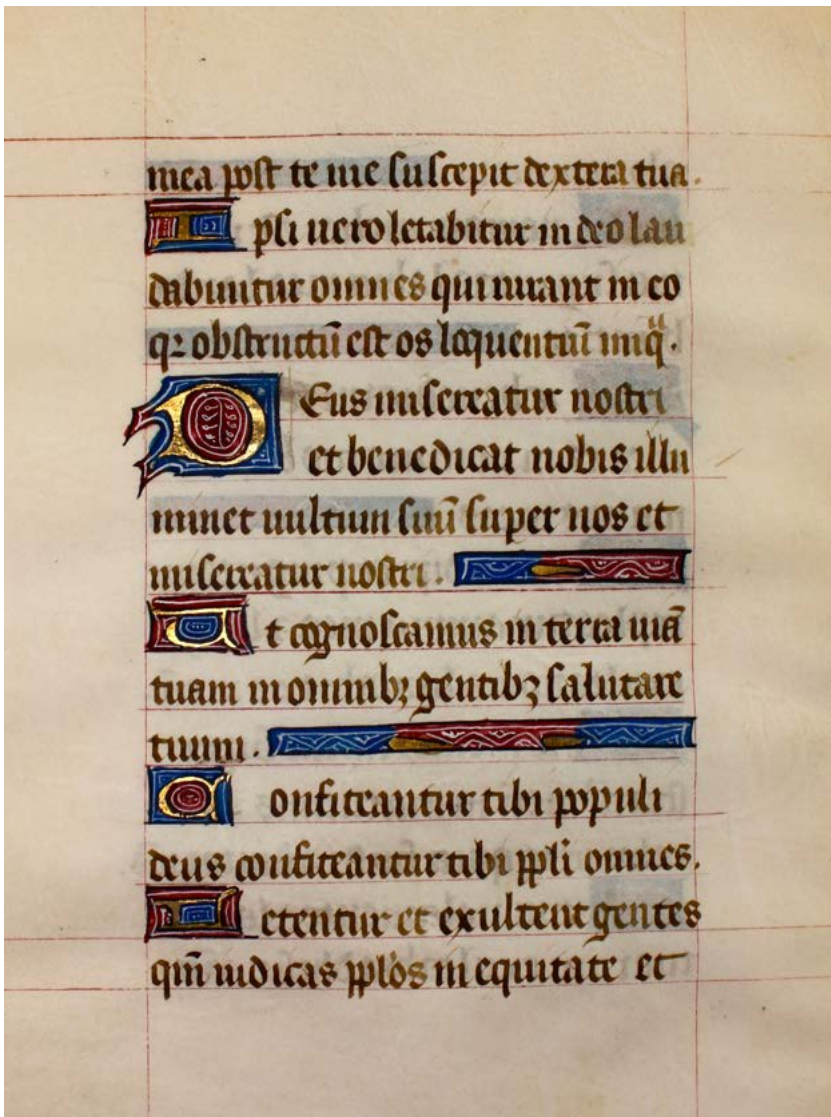 mea post te me suscepit dextera tua.
Ipsi uero letabitur in deo lau
dabuntur omnes qui iurant in eo
qꝛ obstructū est os loquentiū iniqᵃ.
DEus misereatur nostri
et benedicat nobis illu
minet uultum suū super nos et
misereatur nostri.
Et cognoscamus in terra uiā
tuam in omnibꝫ gentibꝫ salutare
tuum.
Confiteantur tibi populi
deus confiteantur tibi ppli omnes.
Letentur et exultent gentes
qm̄ iudicas pplos in equitate et